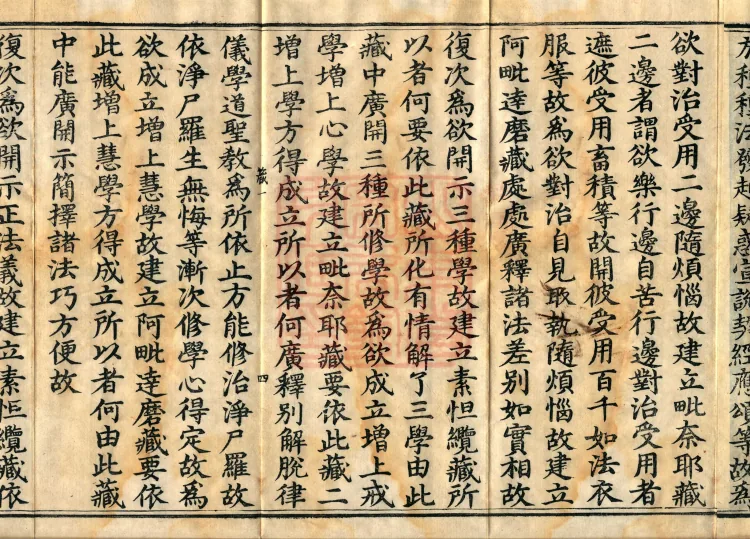 種種治發起疑惑宣說契經應頌等故爲
欲對治受用二邊隨煩惱故建立毗奈耶藏
二邊者謂欲樂行邊自苦行邊對治受用者
遮彼受用畜積等故開彼受用百千如法衣
服等故爲欲對治自見取執隨煩惱故建立
阿毗達磨藏處處廣釋諸法差別如實相故
復次爲欲開示三種學故建立素怛纜藏所
以者何要依此藏所化有情解了三學由此
藏中廣開三種所修學故爲欲成立增上戒
學增上心學故建立毗奈耶藏要依此藏二
增上學方得成立所以者何廣釋別解脫律
藏一 四
儀學道聖教爲所依止方能修治淨尸羅故
依淨尸羅生無悔等漸次修學心得定故爲
欲成立增上慧學故建立阿毗達磨藏要依
此藏增上慧學方得成立所以者何由此藏
中能廣開示簡擇諸法巧方便故
復次爲欲開示正法義故建立素怛纜藏依